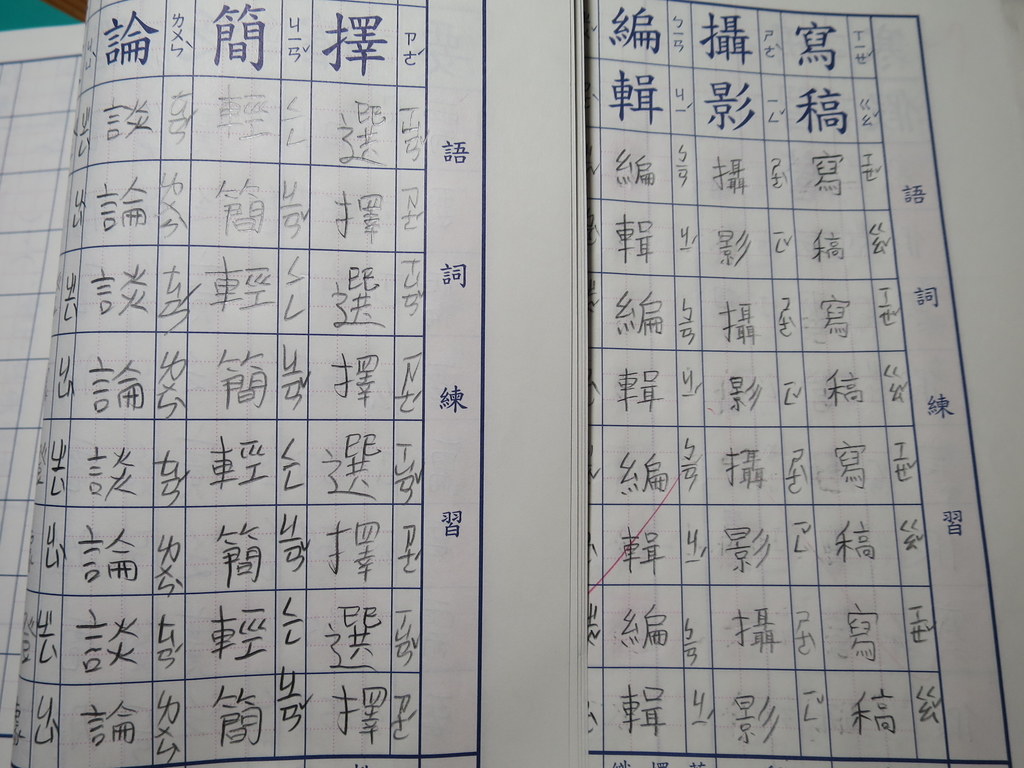 語詞練習
寫稿寫稿寫稿寫稿寫稿
ㄒㄧㄝˇ ㄍㄠˇ ㄒㄧㄝˇ ㄍㄠˇ ㄒㄧㄝˇ ㄍㄠˇ ㄒㄧㄝˇ ㄍㄠˇ ㄒㄧㄝˇ ㄍㄠˇ
攝影攝影攝影攝影攝影
ㄕㄜˋ ㄧㄥˇ ㄕㄜˋ ㄧㄥˇ ㄕㄜˋ ㄧㄥˇ ㄕㄜˋ ㄧㄥˇ ㄕㄜˋ ㄧㄥˇ
編輯編輯編輯編輯編輯
ㄅㄧㄢ ㄐㄧˊ ㄅㄧㄢ ㄐㄧˊ ㄅㄧㄢ ㄐㄧˊ ㄅㄧㄢ ㄐㄧˊ ㄅㄧㄢ ㄐㄧˊ
語詞練習
擇選擇選擇選擇選擇
ㄗㄜˊ ㄒㄩㄢˇ ㄗㄜˊ ㄒㄩㄢˇ ㄗㄜˊ ㄒㄩㄢˇ ㄗㄜˊ ㄒㄩㄢˇ ㄗㄜˊ
簡輕簡輕簡輕簡輕簡
ㄐㄧㄢˇ ㄑㄧㄥ ㄐㄧㄢˇ ㄑㄧㄥ ㄐㄧㄢˇ ㄑㄧㄥ ㄐㄧㄢˇ ㄑㄧㄥ ㄐㄧㄢˇ
論談論談論談論談論
ㄌㄨㄣˋ ㄊㄢˊ ㄌㄨㄣˋ ㄊㄢˊ ㄌㄨㄣˋ ㄊㄢˊ ㄌㄨㄣˋ ㄊㄢˊ ㄌㄨㄣˋ